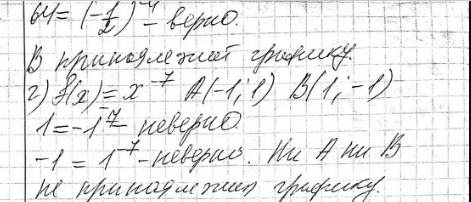 64 = (-1/2)^-4 - верно.
В принадлежит графику.
г) f(x) = x^-7 A(-1; 1) B(1; -1)
1 = -1^-7 - неверно
-1 = 1^-7 - неверно. Ни А ни В
не принадлежит графику.